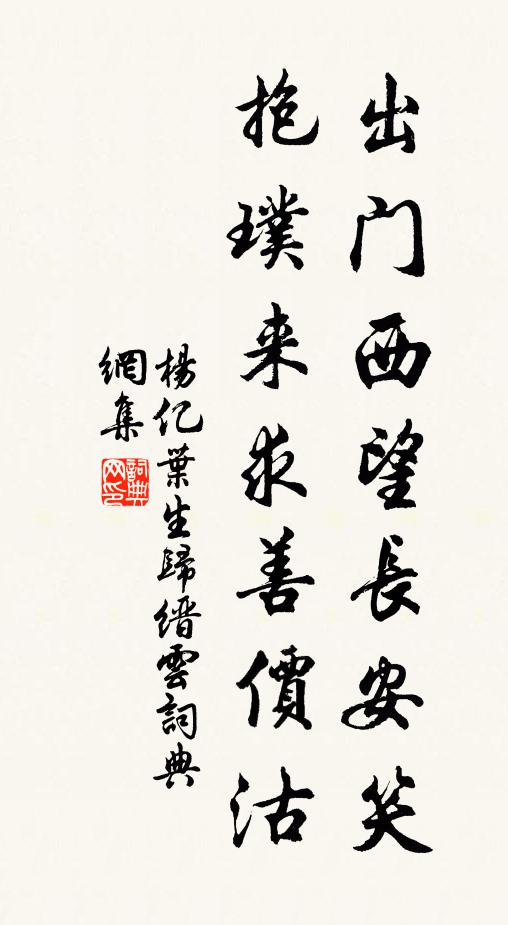 出门西望長安笑
抱璞来求善價沽
楊亿葉生歸縉雲詞典
網集
詞典
网印